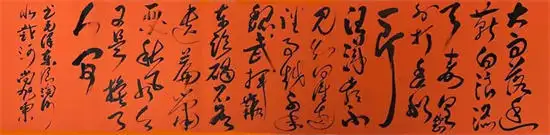 大雨落幽
燕白浪滔
天秦皇岛
外打鱼船
一片
汪洋都不
见知向谁边
往事越千年
魏武挥鞭
东临碣石有
遗篇萧
瑟秋风今
又是换了
人间
毛泽东浪淘沙
北戴河